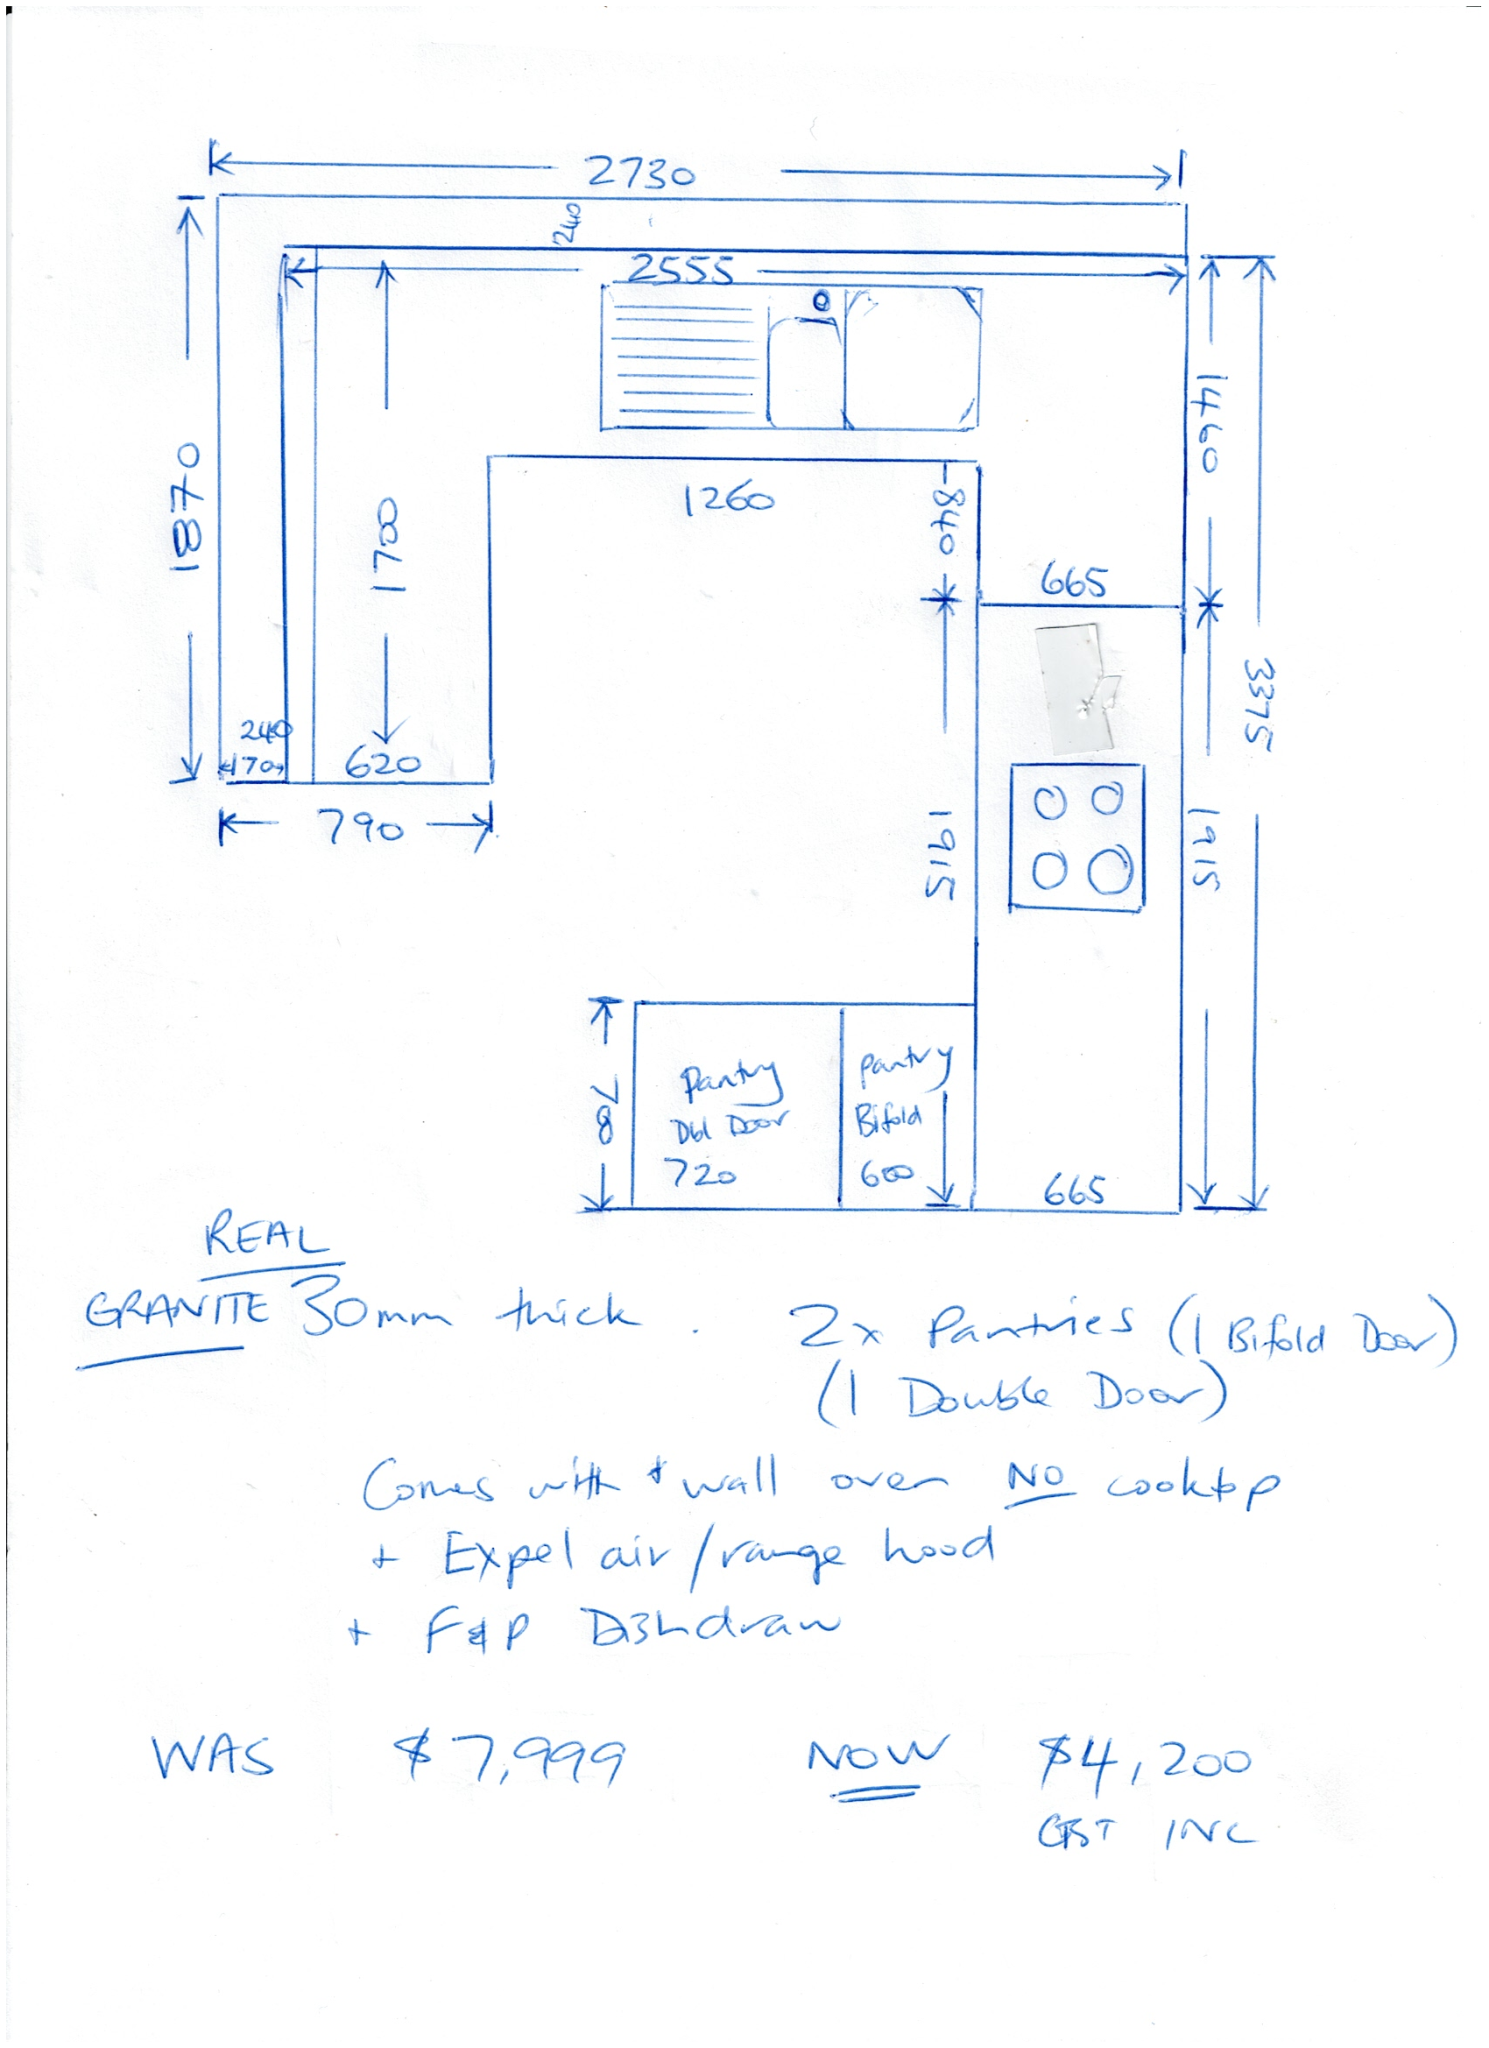 2730
240
2555
1870
1700
1460
1260
840
665
3375
240
170
620
790
1915
1915
Pantry
Dbl Door
720
Pantry
Bifold
600
665
REAL
GRANITE 30mm thick.
2x Pantries (1 Bifold Door)
(1 Double Door)
Comes with wall oven NO cooktop
+ Expel air/range hood
+ F&P Dishdraw
WAS $7,999 NOW $4,200
GST INC